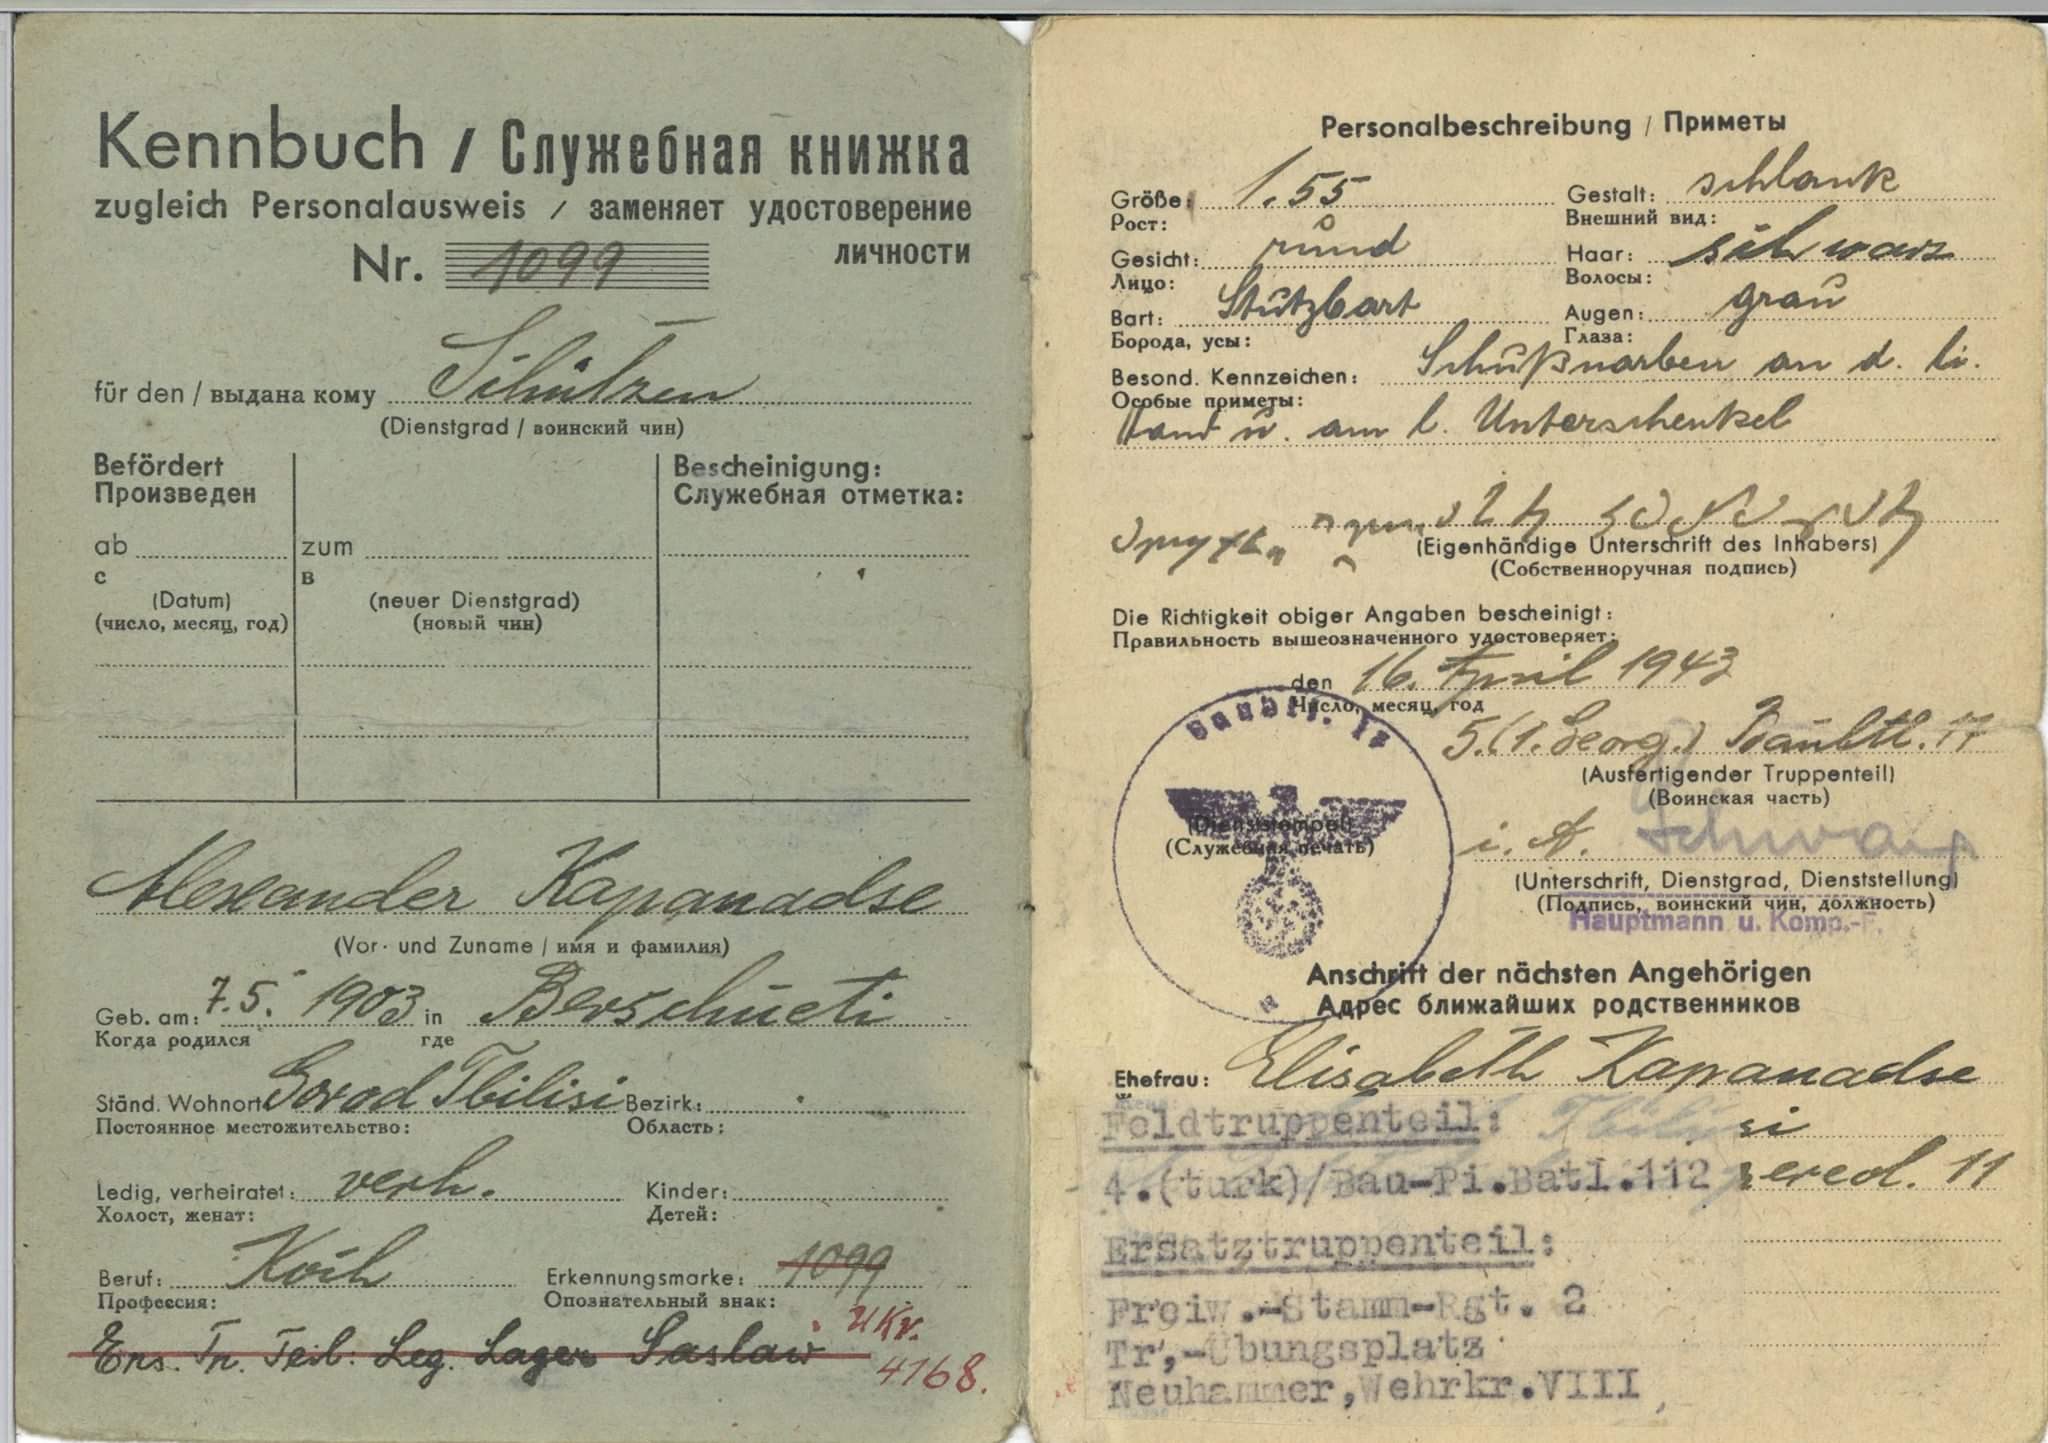 Kennbuch / Служебная книжка
zugleich Personalausweis / заменяет удостоверение
личности
Nr. 1099
für den / выдана кому Schützen
(Dienstgrad / воинский чин)
Befördert
Произведен
Bescheinigung:
Служебная отметка:
ab zum
с в
(Datum) (neuer Dienstgrad)
(число, месяц, год) (новый чин)
Alexander Kapanadse
(Vor- und Zuname / имя и фамилия)
Geb. am: 7.5. 1903 in Berschueti
Когда родился где
Ständ. Wohnort Gorod Tbilisi Bezirk:
Постоянное местожительство: Область:
Ledig, verheiratet: verh. Kinder:
Холост, женат: Детей:
Beruf: Koch Erkennungsmarke: 1099
Профессия: Опознательный знак:
Ukr.
Ers. Tr. Teil: Leg. Lager Saslaw 4168.
Personalbeschreibung / Приметы
Größe: 1.55 Gestalt: schlank
Рост: Внешний вид:
Gesicht: rund Haar: schwarz
Лицо: Волосы:
Bart: Stutzbart Augen: grau
Борода, усы: Глаза:
Besond. Kennzeichen: Schußnarben an d. li.
Особые приметы:
Hand u. am l. Unterschenkel
(Eigenhändige Unterschrift des Inhabers)
(Собственноручная подпись)
Die Richtigkeit obiger Angaben bescheinigt:
Правильность вышеозначенного удостоверяет:
den 16. April 1943
Число, месяц, год
5.(1. Georg.) Baubtl. 17
(Ausfertigender Truppenteil)
(Воинская часть)
(Dienststempel)
(Служебная печать)
i. A. Schwarz
(Unterschrift, Dienstgrad, Dienststellung)
(Подпись, воинский чин, должность)
Hauptmann u. Komp.-F.
Anschrift der nächsten Angehörigen
Адрес ближайших родственников
Ehefrau: Elisabeth Kapanadse
Feldtruppenteil: Tbilisi
4.(turk)/Bau-Pi.Batl.112 ered. 11
Ersatztruppenteil:
Freiw.-Stamm-Rgt. 2
Tr.-Übungsplatz
Neuhammer,Wehrkr.VIII